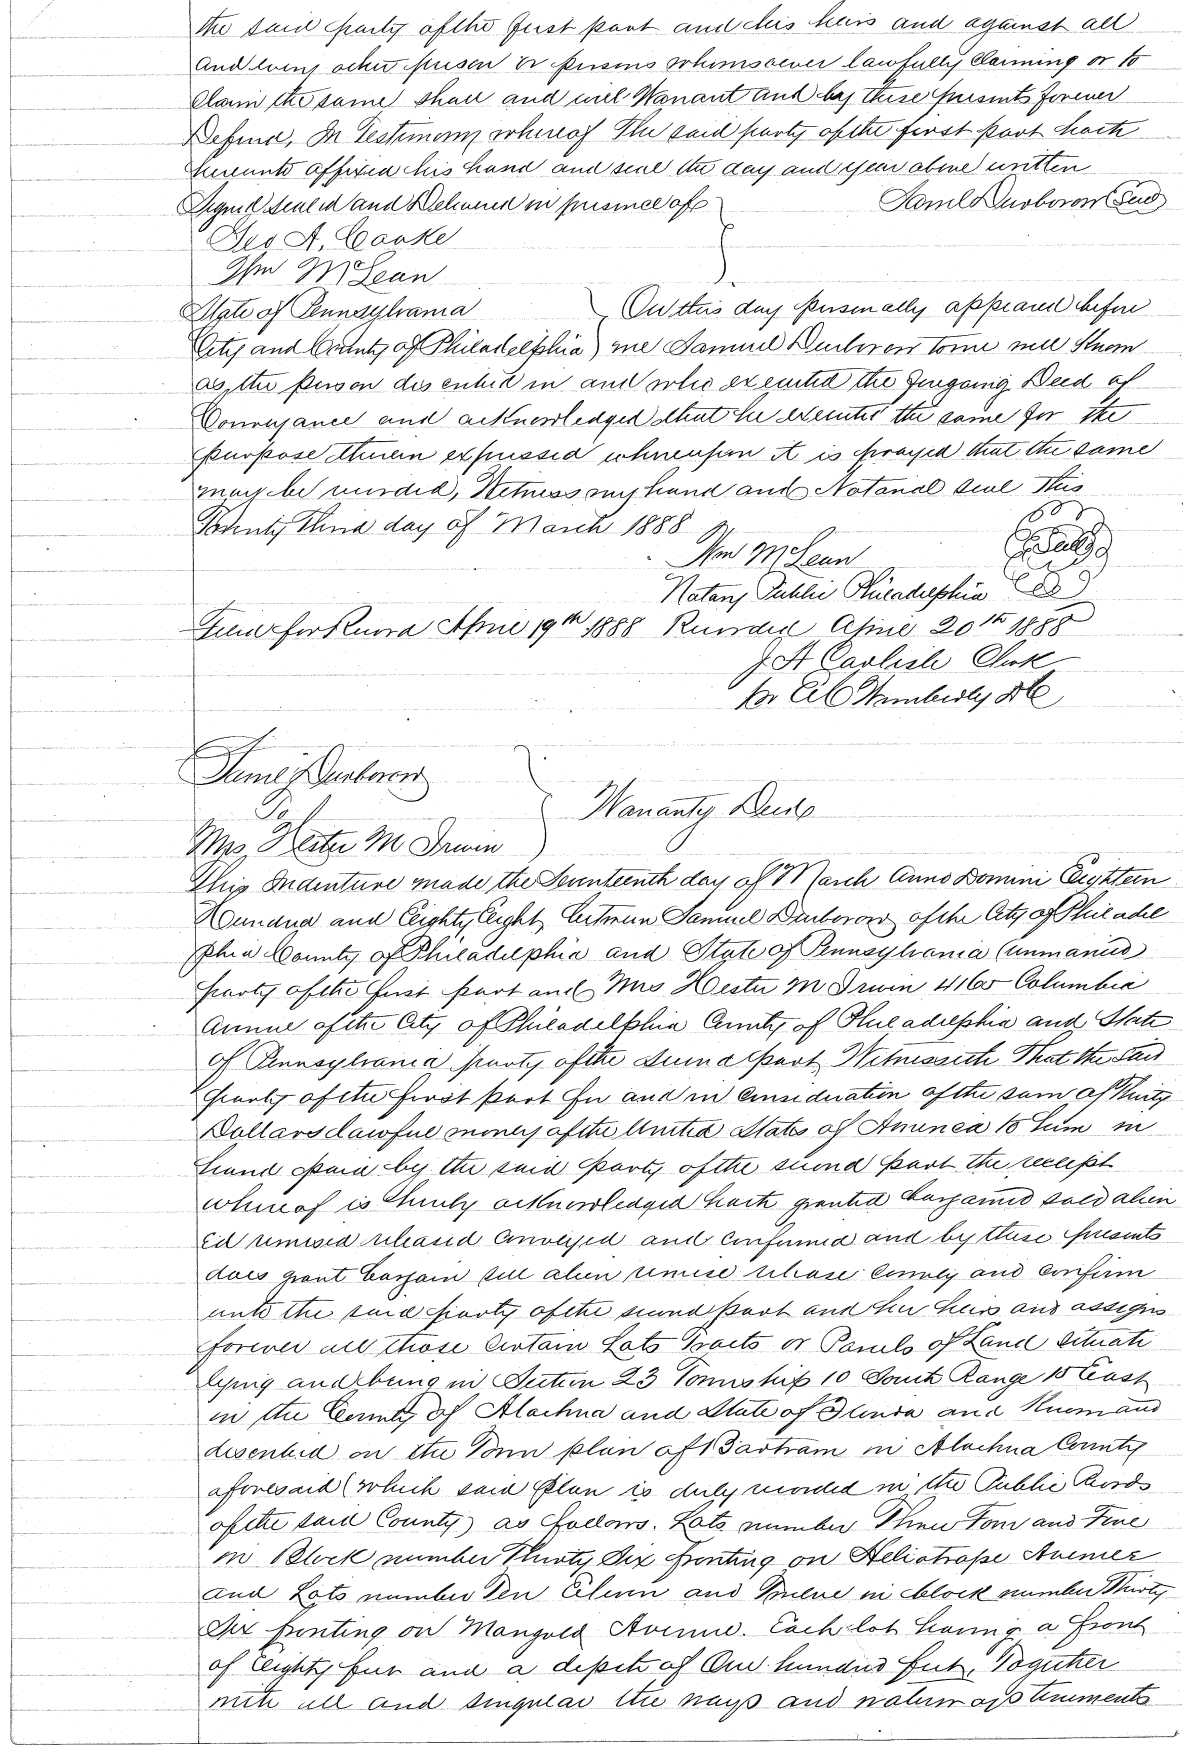 the said party of the first part and his heirs and against all
and every other person or persons whomsoever lawfully Claiming or to
Claim the same shall and will Warrant and by these presents forever
Defend, In Testimony whereof The said party of the first part hath
hereunto affixed his hand and seal the day and year above written
Signed Sealed and Delivered in presence of Saml Durborow Seal
Geo A. Cooke
Wm McLean
State of Pennsylvania } On this day personally appeared before
City and County of Philadelphia } me Samuel Durborow to me well Known
as the person described in and who executed the foregoing Deed of
Conveyance and acknowledged that he executed the same for the
purpose therein expressed whereupon it is prayed that the same
may be recorded, Witness my hand and Notarial seal This
Twenty Third day of March 1888
Wm McLean Seal
Notary Public Philadelphia
Filed for Record April 19th 1888 Recorded April 20th 1888
J A Carlisle Clerk
Wimberly DC
Durborow
To } Warranty Deed
Mrs Hester M Irwin
This Indenture made the Seventeenth day of March Anno Domini Eighteen
Hundred and Eighty Eight between Samuel Durborow of the City of Philadel
phia County of Philadelphia and State of Pennsylvania (unmarried)
party of the first part and Mrs Hester M Irwin Columbia
Avenue of the City of Philadelphia County of Philadelphia and State
of Pennsylvania party of the second part Witnesseth That the said
party of the first part for and in Consideration of the sum of Thirty
Dollars lawful money of the United States of America to him in
hand paid by the said party of the second part the receipt
whereof is hereby acknowledged hath granted bargained sold alien
ed remised released Conveyed and Confirmed and by these presents
does grant bargain sell alien remise release Convey and Confirm
unto the said party of the second part and her heirs and assigns
forever all those Certain Lots Tracts or Parcels of Land Situate
lying and being in Section 23 Township 10 South Range 18 East
in the County of Alachua and State of Florida and Known and
described on the Town plan of Bartram in Alachua County
aforesaid (which said Plan is duly recorded in the Public Records
of the said County) as follows. Lots number Three Four and Five
in Block number Thirty Six fronting on Heliotrope Avenue
and Lots number Ten Eleven and Twelve in block number Thirty
Six fronting on Marigold Avenue. Each lot having a front
of Eighty feet and a depth of One hundred feet, Together
with all and singular the ways and waters tenements